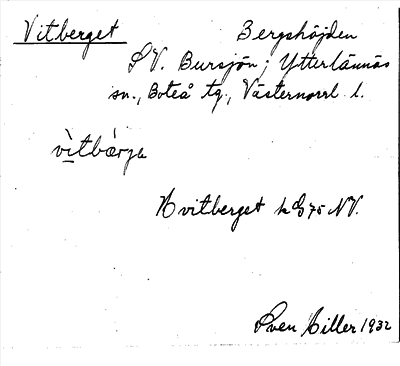 Vitberget Bergshöjden
SV. Bursjön; Ytterlännäs
sn., Boteå tg., Västernorrl. l.
vìtbárja
Hvitberget k 75 NV.
Sven Ciller 1932